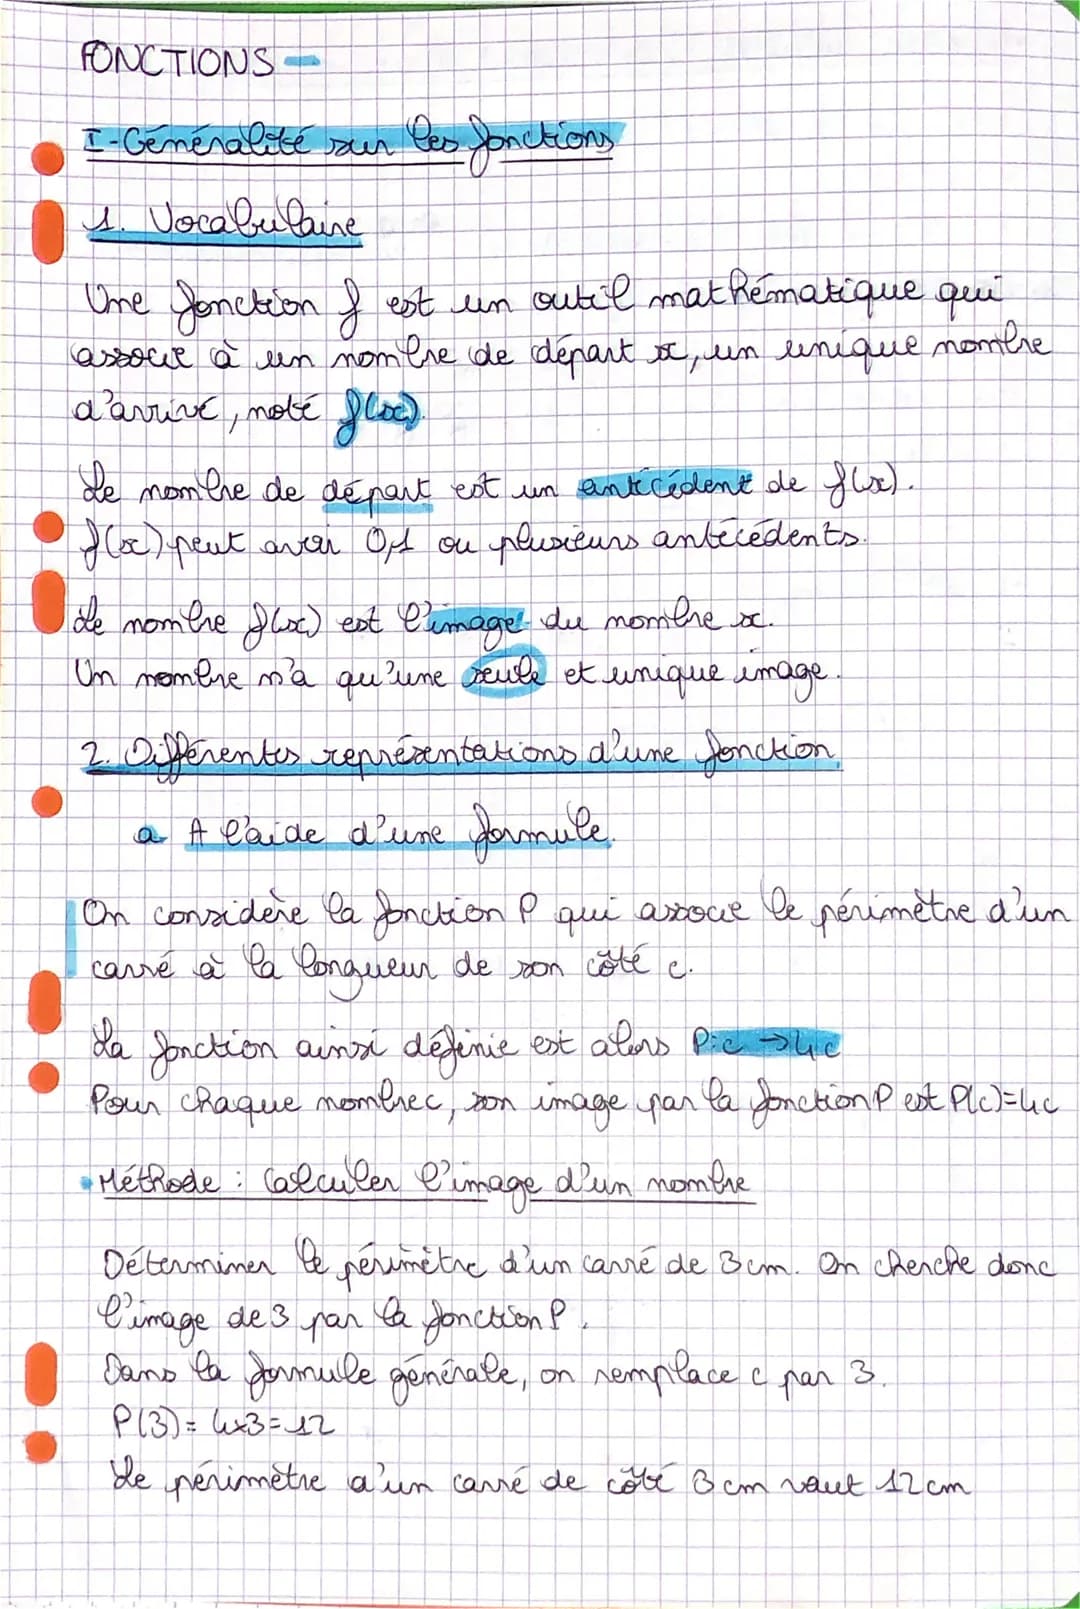 FONCTIONS -
I-Généralité sur les fonctions
1. Vocabulaire
Une fonction f est un outil mathématique qui
associe à un nombre de départ x, un unique nombre
d'arrivé, noté f(x).
Le nombre de départ est un antécédent de f(x).
f(x) peut avoir 0,1 ou plusieurs antécédents.
Le nombre f(x) est l'image du nombre x.
Un nombre n'a qu'une seule et unique image.
2. Différentes représentations d'une fonction
a A l'aide d'une formule.
On considère la fonction P qui associe le périmètre d'un
carré à la longueur de son côté c.
La fonction ainsi définie est alors P:c →4c
Pour chaque nombre c, son image par la fonction P est P(c)=4c
• Méthode : Calculer l'image d'un nombre
Déterminer le périmètre d'un carré de 3cm. On cherche donc
l'image de 3 par la fonction P.
Dans la formule générale, on remplace c par 3.
P(3) = 4x3=12
Le périmètre d'un carré de côté 3 cm vaut 12 cm